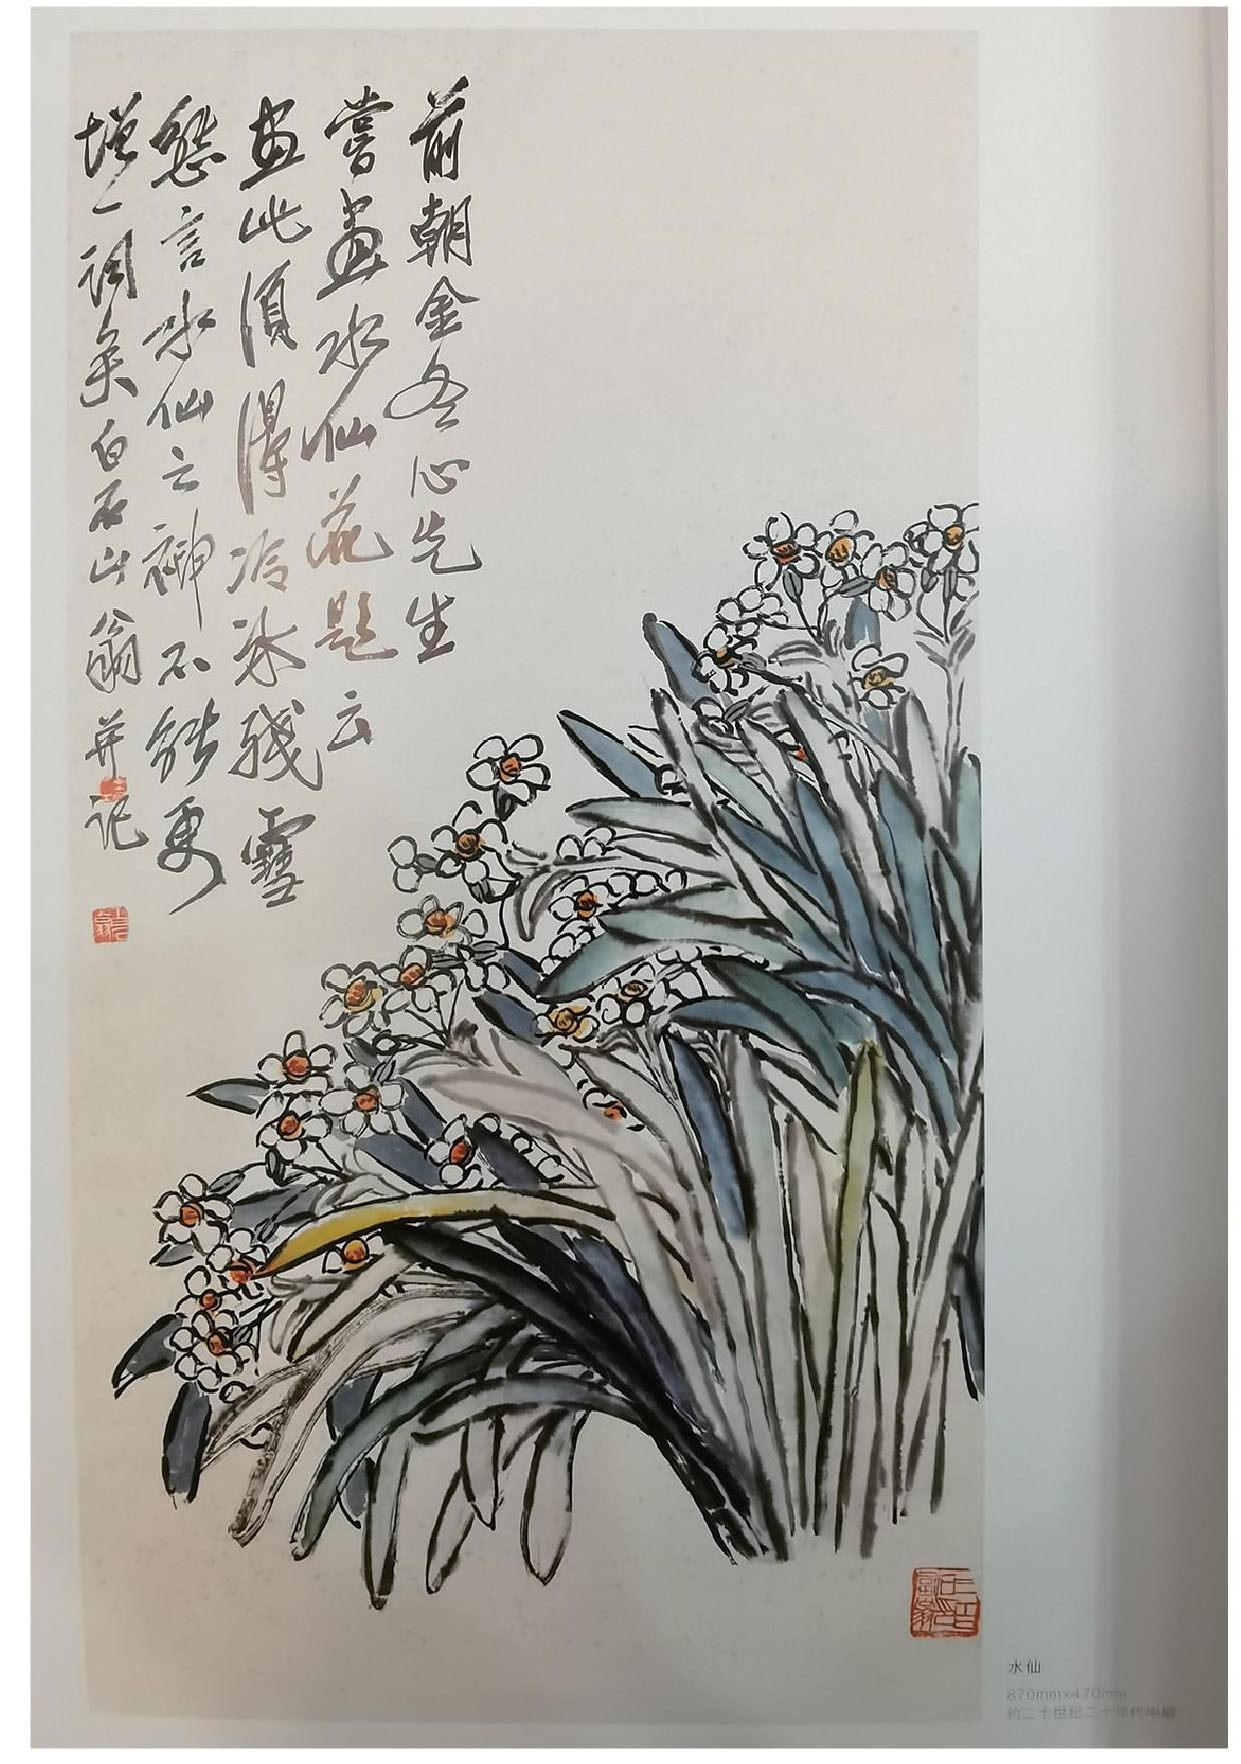 前朝金冬心先生
嘗畫水仙花題云
畫此須得冷冰殘雪
態言水仙之神不能更
增一詞矣白石山翁并記
水仙
870mm×470mm
约二十世纪二十年代中期